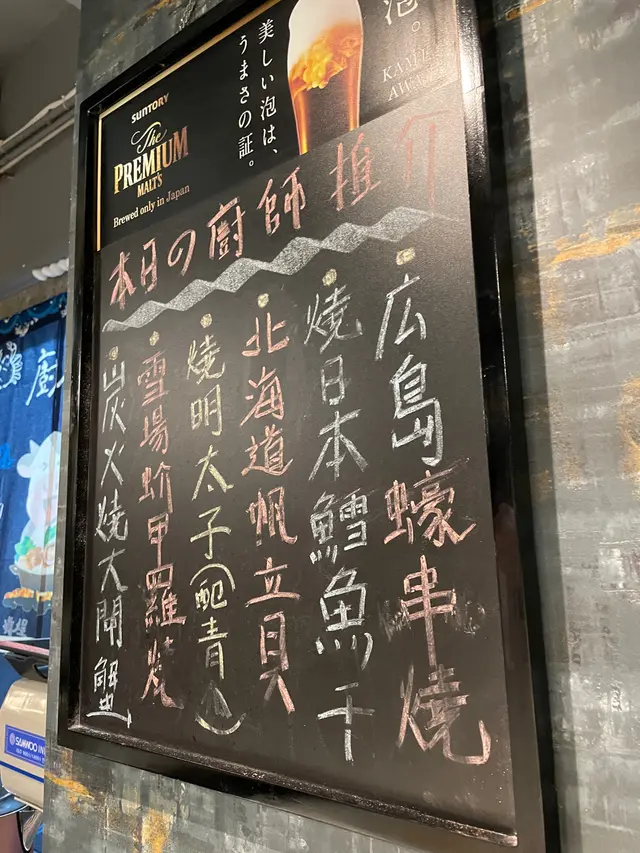 SUNTORY
The
PREMIUM
MALT'S
Brewed only in Japan
美しい泡は、
うまさの証。
泡。
本日の廚師推介
広島蠔串燒
燒日本鱈魚干
北海道帆立貝
燒明太子(配青
雪場蚧甲羅燒
炭火燒大閘蟹
廚
SAMWOO IN